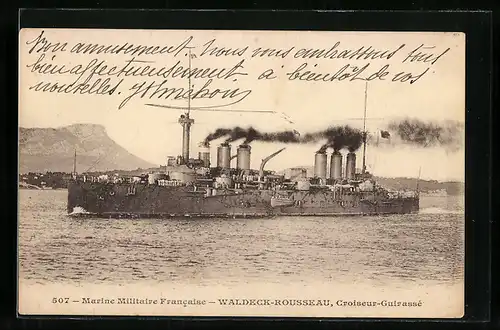 Bon amusement. nous vous embrassons tous
bien affectueusement - à bientôt de vos
nouvelles.
507 – Marine Militaire Française – WALDECK-ROUSSEAU, Croiseur-Cuirassé